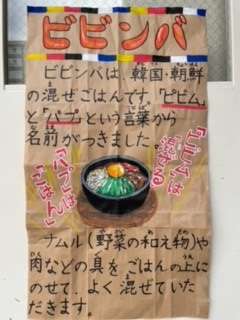 ビビンバ
ビビンバは、韓国・朝鮮
の混ぜごはんです。「ピビム」
と「パプ」という言葉から
名前がつきました。
「ピビム」は
「混ぜる」
「パプ」は
「ごはん」
ナムル(野菜の和え物)や
肉などの具をごはんの上に
のせて、よく混ぜていた
だきます。